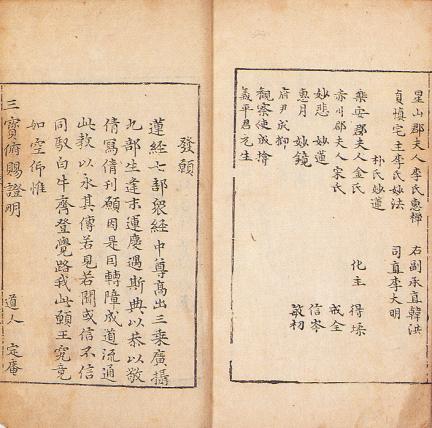 星山郡夫人李氏惠樺 右副承直韓洪
貞慎宅主李氏妙法 司直李大明
朴氏妙蓮
樂安郡夫人金氏 化主 得
川郡夫人宋氏 戒全
妙悲 妙蓮 信岑
惠月 妙鏡 敏初
府尹成抑
觀察使成揜
義平君元生
發願
蓮經七部衆經中尊高出三乘廣攝
九部生逢末運慶遇斯典以恭以敬
倩寫倩刊願因是因轉障成道流通
此教以永其傳若見若聞或信不信
同馭白牛齊登覺路我此願王究竟
如空仰惟
三寶俯賜證明 道人 定庵